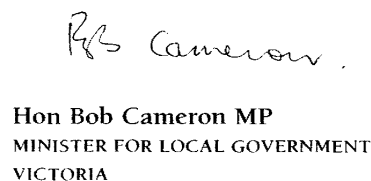 Bob Cameron.
Hon Bob Cameron MP
MINISTER FOR LOCAL GOVERNMENT
VICTORIA